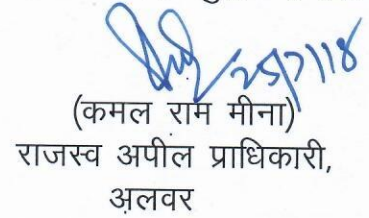 25/7/18
(कमल राम मीना)
राजस्व अपील प्राधिकारी,
अलवर